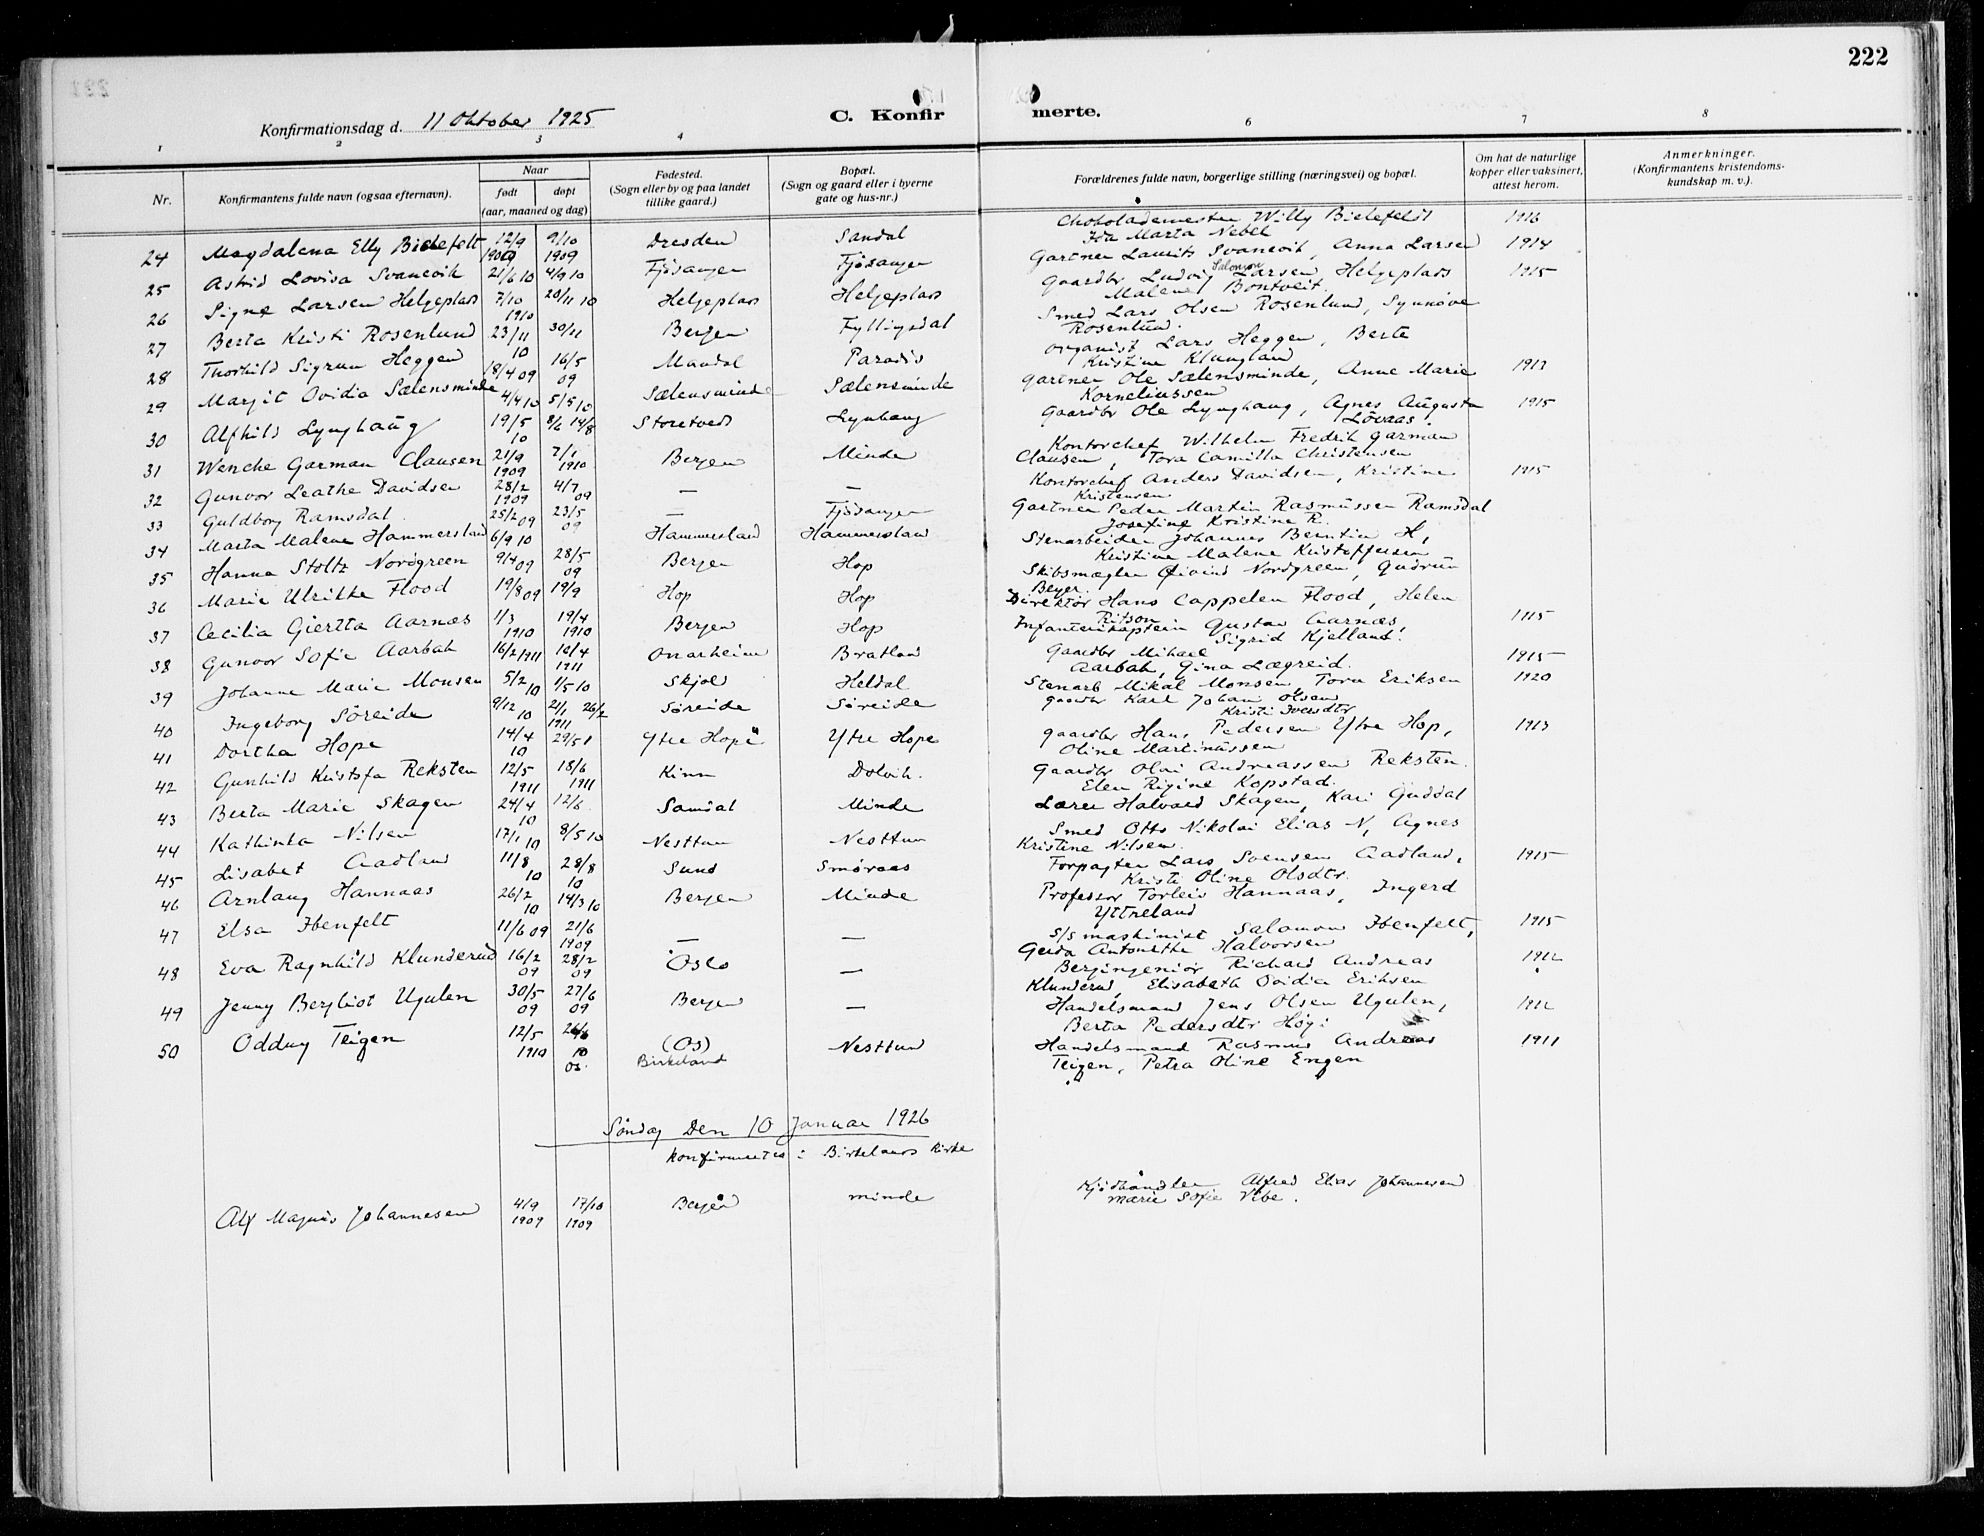 222
Konfirmationsdag d. 11 Oktober 1925
C. Konfirmerte.
1 2 3 4 6 7 8
Nr. Konfirmantens fulde navn (ogsaa efternavn). Naar født døpt (aar, maaned og dag) Fødested. (Sogn eller by og paa landet tillike gaard.) Bopæl. (Sogn og gaard eller i byerne gate og hus-nr.) Forældrenes fulde navn, borgerlige stilling (næringsvei) og bopæl. Om hat de naturlige kopper eller vaksinert, attest herom. Anmerkninger. (Konfirmantens kristendomskundskap m. v.).
24 Magdalena Elly Bielefelt 12/9 1909 9/10 1909 Dresden Sandal Chokolademester Willy Bielefeldt 1916
Ida Marta Nebel
25 Astrid Lovisa Svanevik 21/6 10 4/9 10 Fjøsanger Fjøsanger Gartner Laurits Svanevik, Anna Larsen 1914
26 Signe Larsen Helgeplads 7/10 1910 20/11 10 Helgeplads Helgeplads Gaardbr Ludvig Salomon Larsen, Helgeplads 1915
Malene Bontveit.
27 Berta Kristi Rosenlund 23/11 10 30/11 Bergen Fyllingsdal Smed Lars Olsen Rosenlund, Synnøve
Rosenlund.
28 Thorhild Sigrun Heggen 18/4 09 16/5 09 Mandal Paradis Organist Lars Heggen, Berte
Kristine Klungland
29 Margit Ovidia Sælensminde 4/4 10 5/5 10 Sælensminde Sælensminde Gartner Ole Sælensminde, Anne Marie 1913
Korneliussen
30 Alfhild Lynghaug 19/5 10 8/6 14/8 Storetvedt Lynhaug Gaardbr Ole Lynghaug, Agnes Augusta 1915
Løvaas.
31 Wenche Garman Clausen 21/9 1909 7/1 1910 Bergen Minde Kontorchef Wilhelm Fredrik Garman
Clausen, Tora Camilla Christensen
32 Gunvor Leathe Davidsen 28/2 1909 4/7 09 — — Kontorchef Anders Davidsen, Kristine 1915
Kristensen
33 Guldborg Ramsdal 25/2 09 23/5 09 — Fjøsanger Gartner Peder Martin Rasmussen Ramsdal
Josefine Kristine R.
34 Marta Malene Hammersland 6/9 10 Hammersland Hammersland Stenarbeider Johannes Berntin H,
Kristine Malene Kristoffersen
35 Hanna Stoltz Nordgreen 9/4 09 28/5 09 Bergen Hop Skibsmægler Øivind Nordgreen, Gudrun
Beyer.
36 Marie Ulrikke Flood 19/8 09 19/9 Hop Hop Direktør Hans Cappelen Flood, Helen
Ritson
37 Cecilia Giertta Aarnæs 1/3 1910 19/4 1910 Bergen Hop Infanterikaptein Gustav Aarnæs, 1915
Sigrid Kjelland.
38 Gunvor Sofie Aarbak 16/2 1911 16/4 1911 Onarheim Bratland Gaardbr Mikael 1915
Aarbak, Gina Lægreid.
39 Johanne Marie Monsen 5/2 10 1/5 10 Skjold Heldal Stenarb Mikal Monsen Tora Eriksen 1920
40 Ingeborg Søreide 9/12 10 2/1 26/2 1911 Søreide Søreide gaardbr Karl Johan Olsen
Kristi Iversdtr
41 Dortha Hope 14/4 10 29/5 Ytre Hope Ytre Hope gaardbr Hans Pedersen Ytre Hop, 1913
Oline Martinussen
42 Gunhild Kristofa Reksten 12/5 1911 18/6 1911 Kinn Dolvik. Gaardbr Olai Andreassen Reksten.
Elen Rigine Kopstad.
43 Berta Marie Skagen 24/4 10 12/6 Samdal Minde Lærer Halvard Skagen, Kari Guddal
44 Kathinka Nilsen 17/1 10 8/5 10 Nesttun Nesttun Smed Otto Nikolai Elias N, Agnes
Kristine Nilsen.
45 Lisabet Aadland 11/8 10 28/8 10 Sund Smøraas Forpagter Lars Svensen Aadland, 1915
Kristi Oline Olsdtr.
46 Arnlaug Hannaas 26/2 10 14/3 10 Bergen Minde Professor Torleiv Hannaas, Ingerd
Yttreland
47 Elsa Ibenfelt 11/6 09 21/6 1909 — — S/S maskinist Salomon Ibenfelt, 1915
Gerda Antonette Halvorsen
48 Eva Ragnhild Klunderud 16/2 09 28/2 09 Oslo — Bergingeniør Richard Andreas 1912
Klunderud, Elisabeth Ovidia Eriksen
49 Jenny Bergliot Ugulen 30/5 09 27/6 09 Bergen — Handelsmand Jens Olsen Ugulen, 1912
Berta Pedersdtr Høgi
50 Oddny Teigen 12/5 1910 26/6 10 Os. (Os) Birkeland Nesttun Handelsmand Rasmus Andreas 1911
Teigen, Petra Oline Engen
Søndag den 10 Januar 1926
konfirmertes i Birkelands kirke
Alf Magnus Johannesen 4/9 1909 17/10 1909 Bergen minde Kjødhandler Alfred Elias Johannesen
Marie Sofie Vibe.